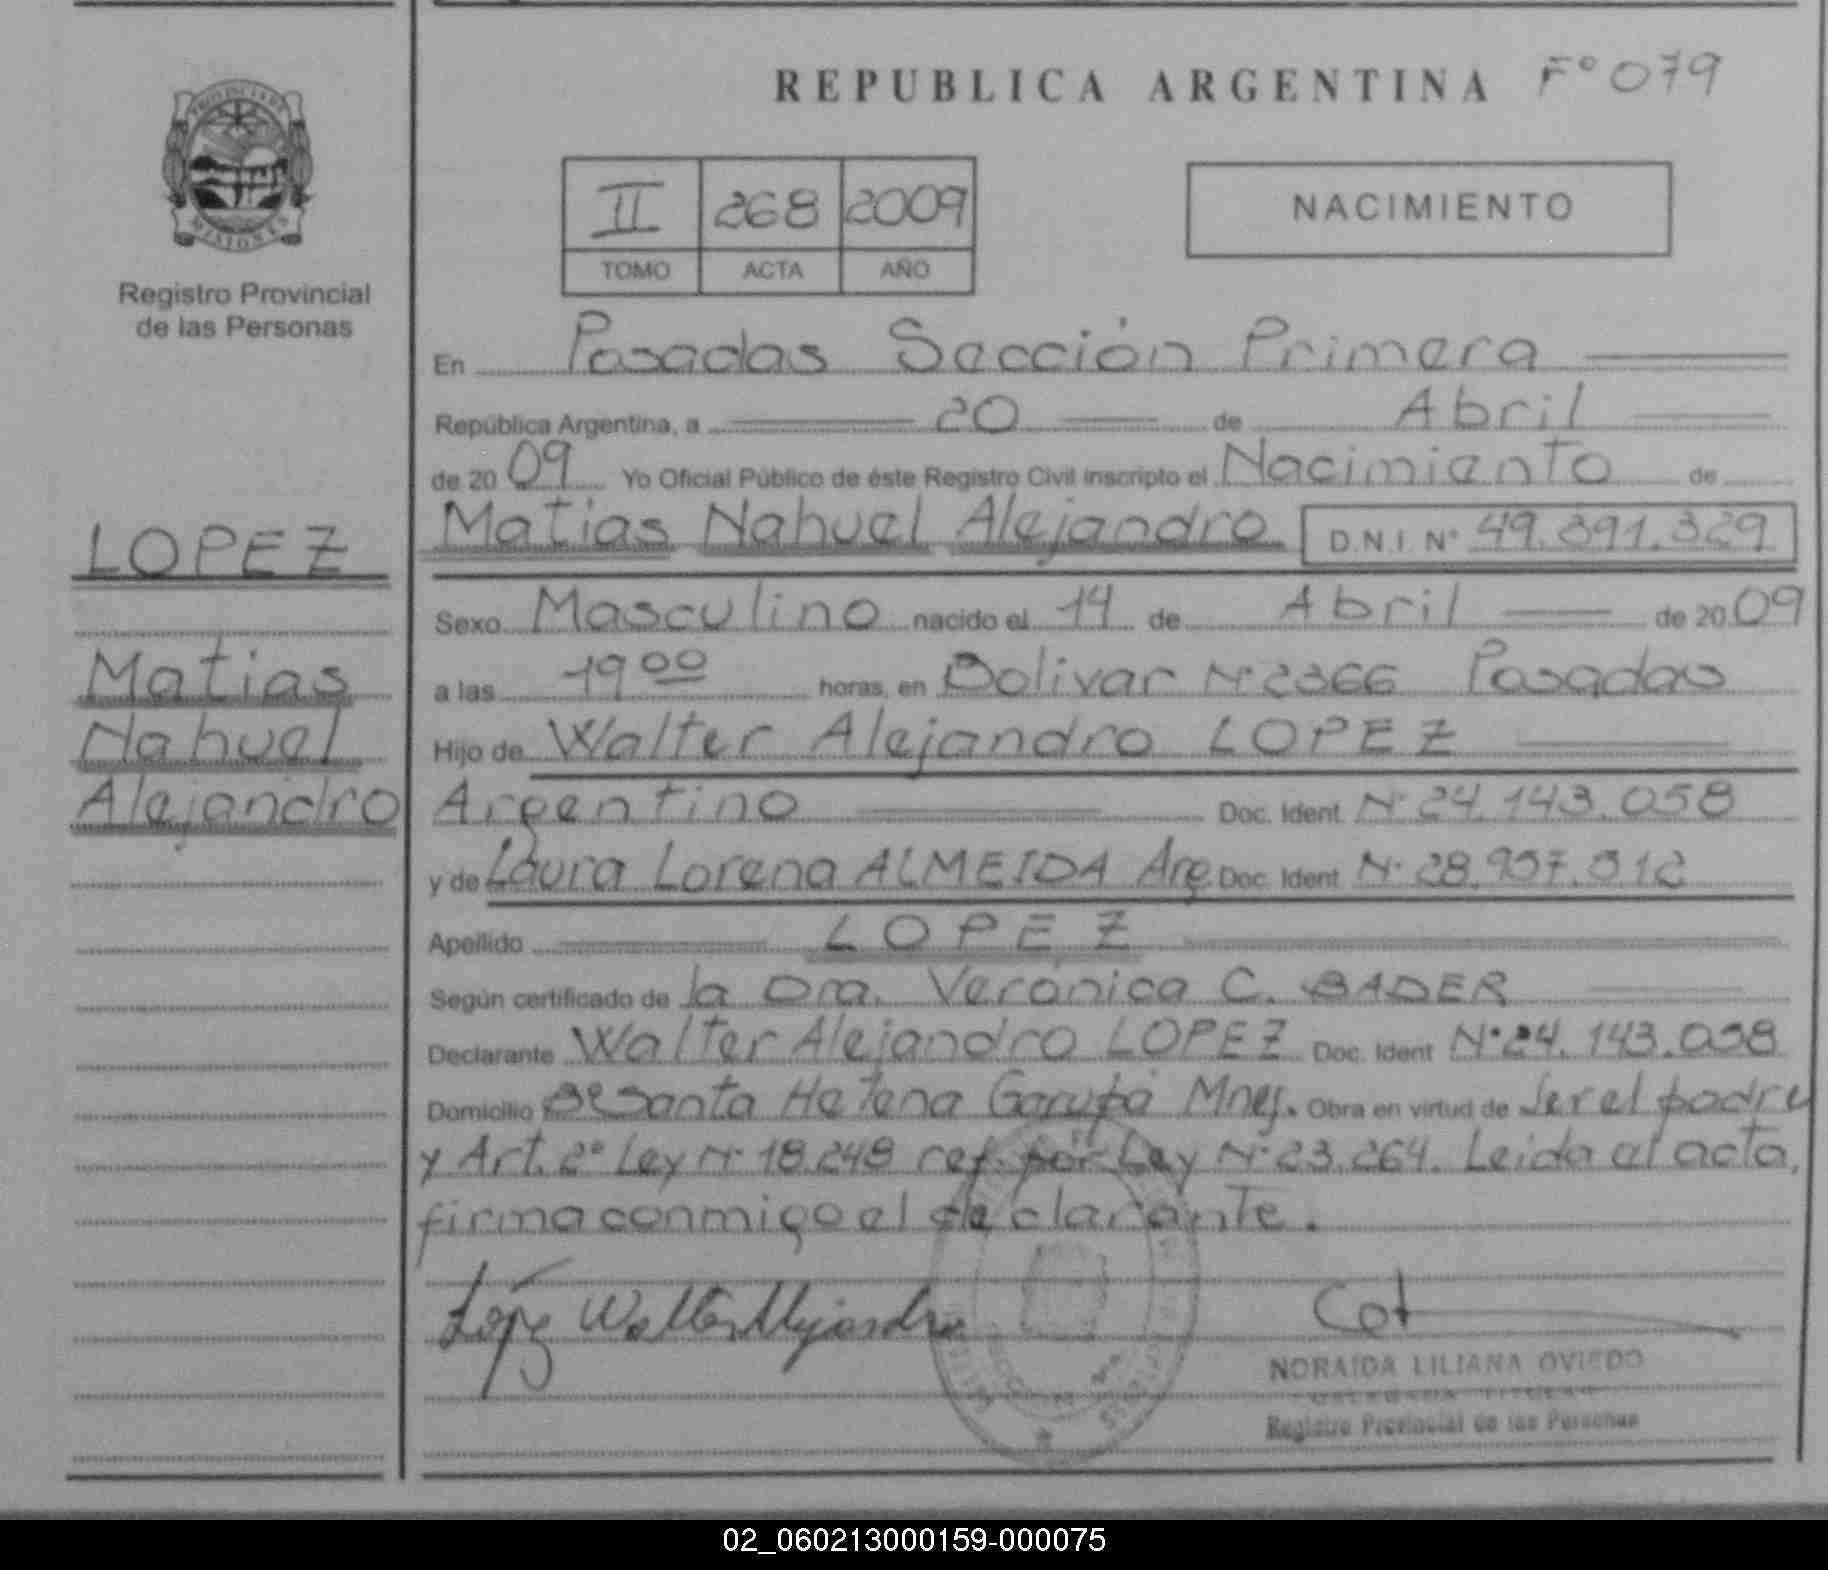 REPUBLICA ARGENTINA Fº 079
PROVINCIA DE
MISIONES
Registro Provincial
de las Personas
II 268 2009
TOMO ACTA AÑO
NACIMIENTO
En Posadas Sección Primera
República Argentina, a 20 de Abril
de 2009 Yo Oficial Público de éste Registro Civil inscripto el Nacimiento de
LOPEZ
Matias Nahuel Alejandro D.N.I. Nº 49.391.329
Sexo Masculino nacido el 14 de Abril de 2009
Matias
a las 19 00 horas, en Bolivar Nº 2366 Posadas
Nahuel
Hijo de Walter Alejandro LOPEZ
Alejandro
Argentino Doc. Ident Nº 24.143.058
y de Laura Lorena ALMEIDA Arg. Doc. Ident Nº 28.907.312
Apellido LOPEZ
Según certificado de la Dra. Verónica C. BADER
Declarante Walter Alejandro LOPEZ Doc. Ident Nº 24.143.058
Domicilio Santa Helena Garupá Mnes. Obra en virtud de ser el padre
y Art. 2º Ley Nº 18.248 ref. por Ley Nº 23.264. Leida el acta,
firma conmigo el declarante.
López Walter Alejandro
NORAIDA LILIANA OVIEDO
DELEGADA TITULAR
Registro Provincial de las Personas
02_060213000159-000075